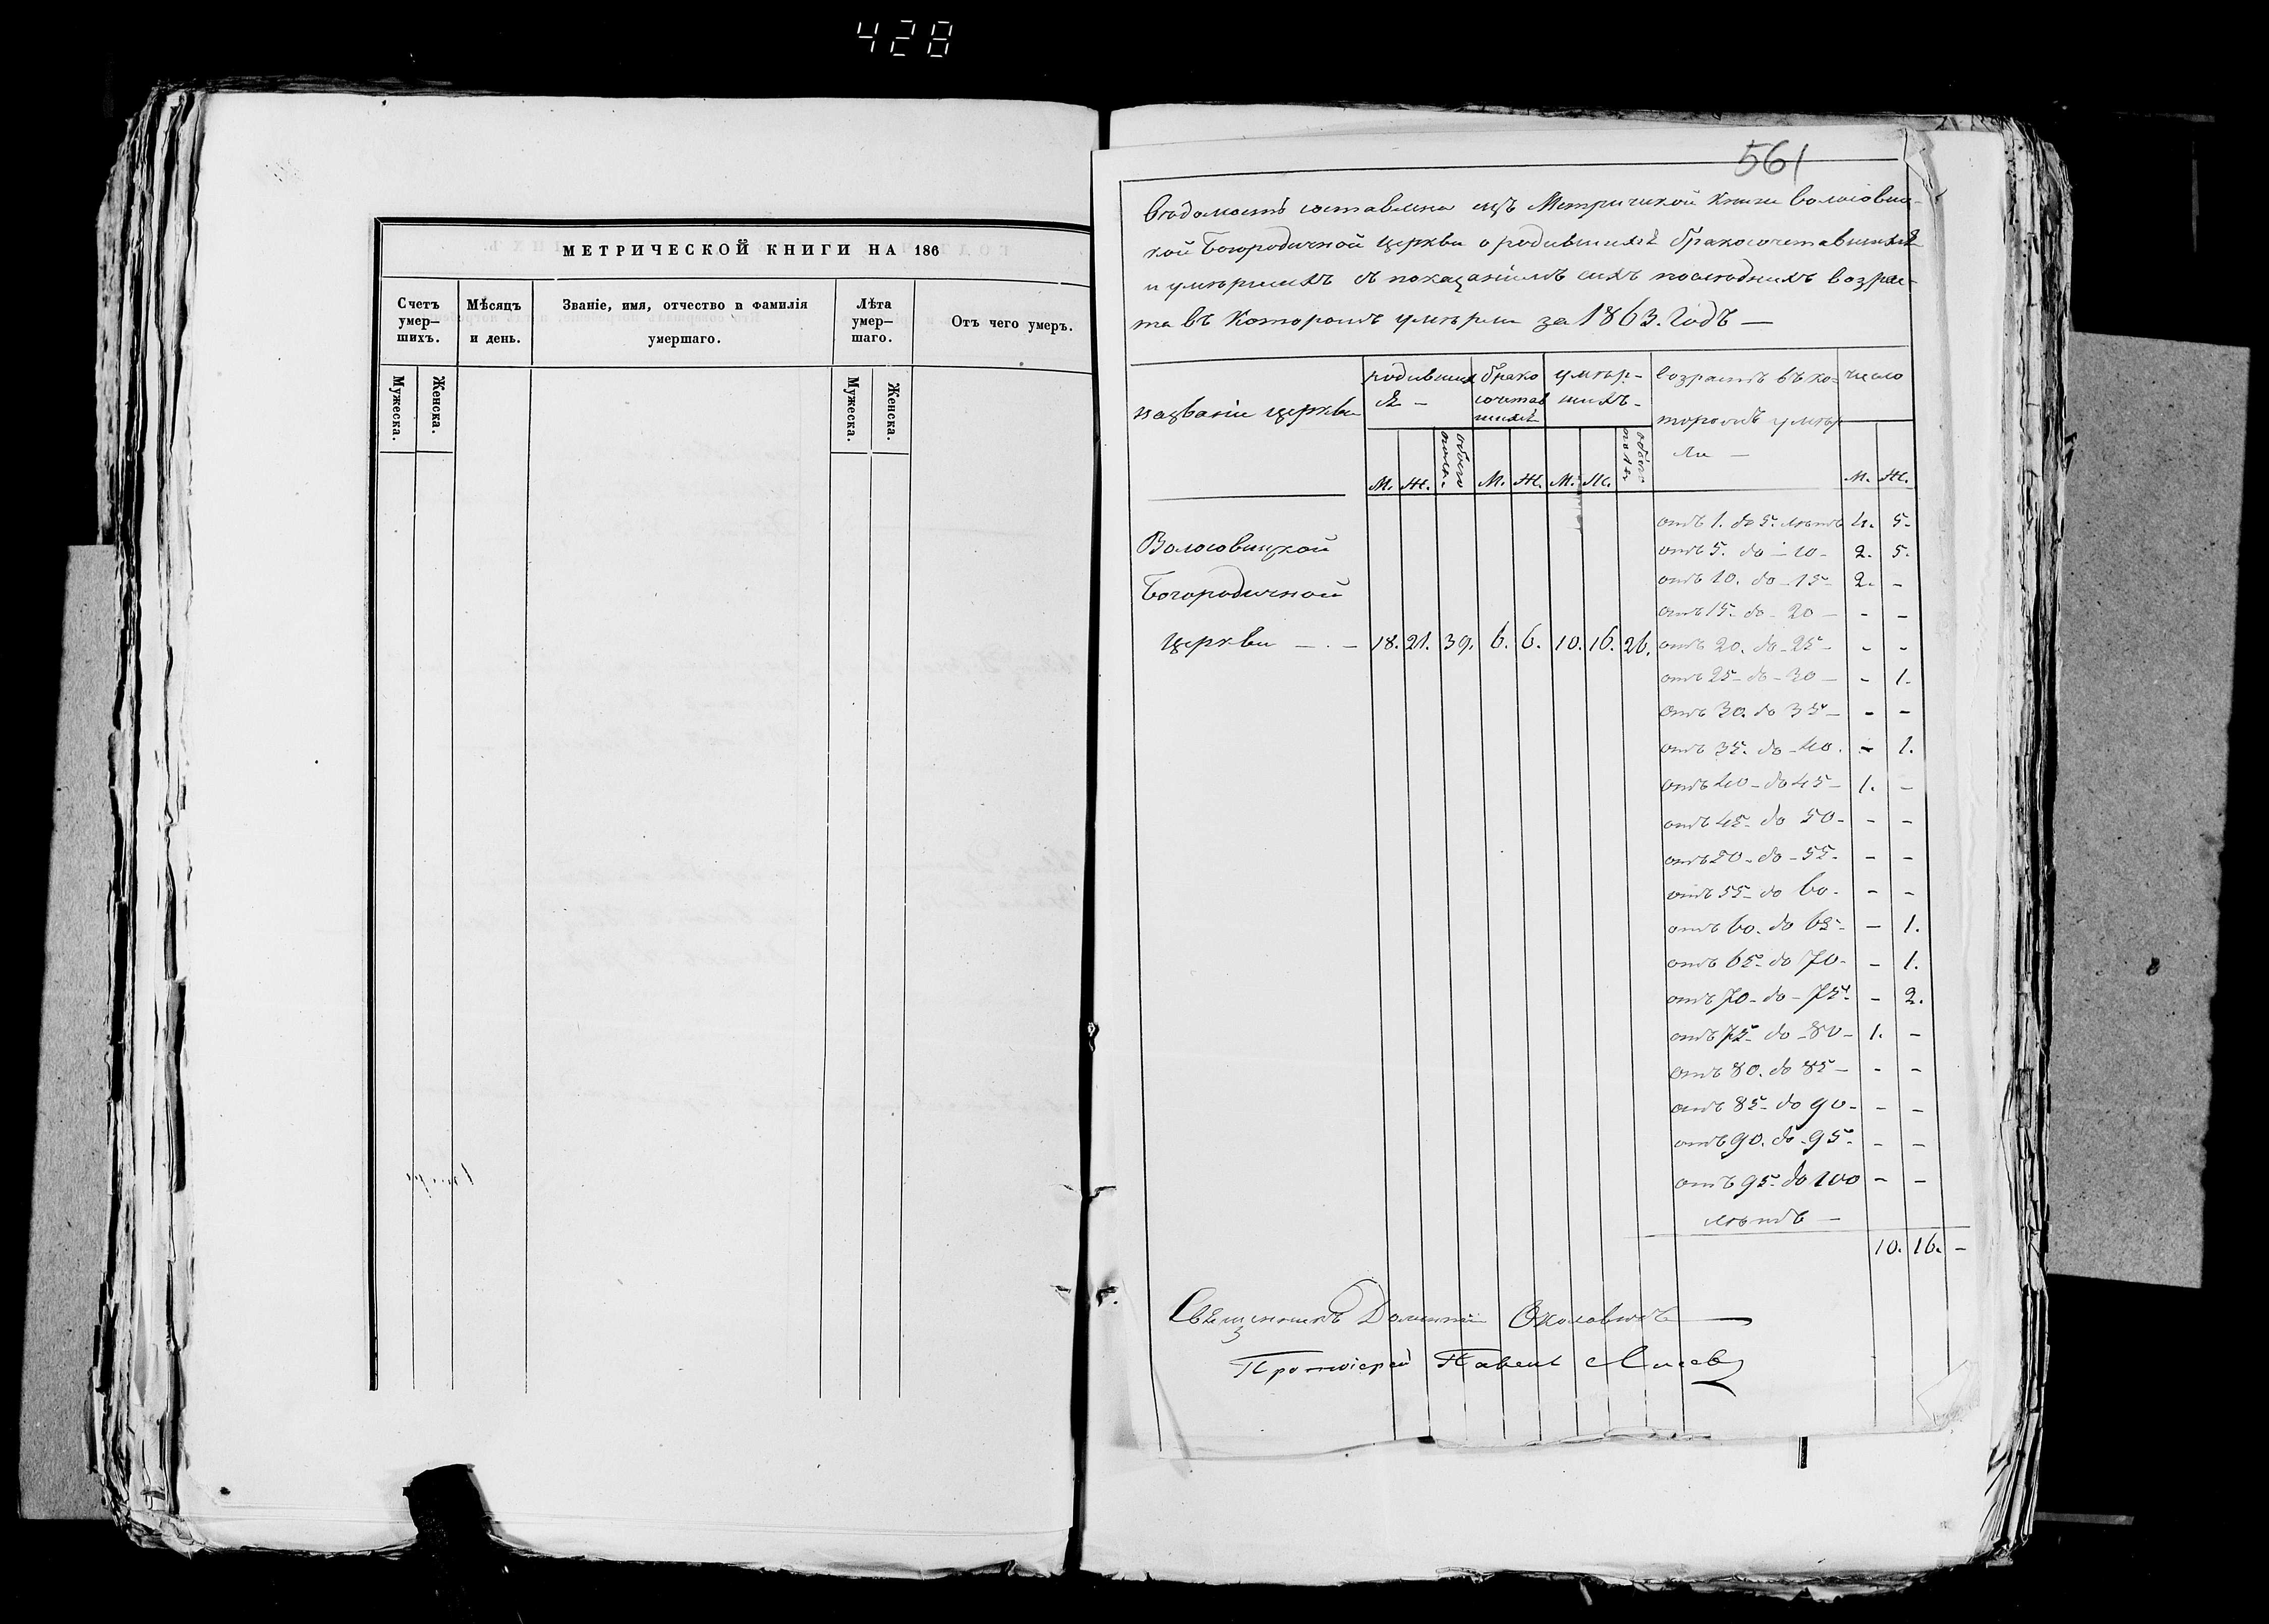 428
МЕТРИЧЕСКОЙ КНИГИ НА 186
Счетъ умер— шихъ.
Мѣсяцъ и день.
Званіе, имя, отчество и фамилія умершаго.
Лѣта умер— шаго.
Отъ чего умеръ.
Мужеска.
Женска.
Мужеска.
Женска.
561
Вѣдомость составлена изъ Метрической Книги Волосовиц-
кой Богородичной Церкви о родившихся бракосочетавшихся
и умершихъ съ показаніемъ сихъ послѣднихъ возрас-
та въ Которомъ умерли за 1863. Годъ —
названіе церкви
родивших ся —
брако сочетав шихся
умер- шихъ -
возрастъ въ ко- торомъ умер ли —
число
М. Ж. обоего пола. М. Ж. М. Ж. обоего пола М. Ж.
отъ 1. до 5. лѣтъ 4. 5-
Волосовицкой
отъ 5. до — 10 - 2. 5.
Богородичной
отъ 10. до - 15 - 2. -
отъ 15. до - 20 — - -
церкви — . — 18. 21. 39. 6. 6. 10. 16. 26. отъ 20. до - 25 - - -
отъ 25 - до - 30 — - 1.
отъ 30. до 35 — - -
отъ 35. до - 40. - 1.
отъ 40 - до 45 - 1. -
отъ 45 - до 50 - - -
отъ 50 - до - 55. - -
отъ 55 - до 60. - -
отъ 60. до 65 - - 1.
отъ 65 - до 70 - - 1.
отъ 70 - до - 75 - - 2.
отъ 75 - до - 80 - 1. -
отъ 80. до 85 — - -
отъ 85 - до 90 - - -
отъ 90. до - 95 - - -
отъ 95 - до 100 - -
лѣтъ —
10. 16. -
Священникъ
Протоіерей Павелъ